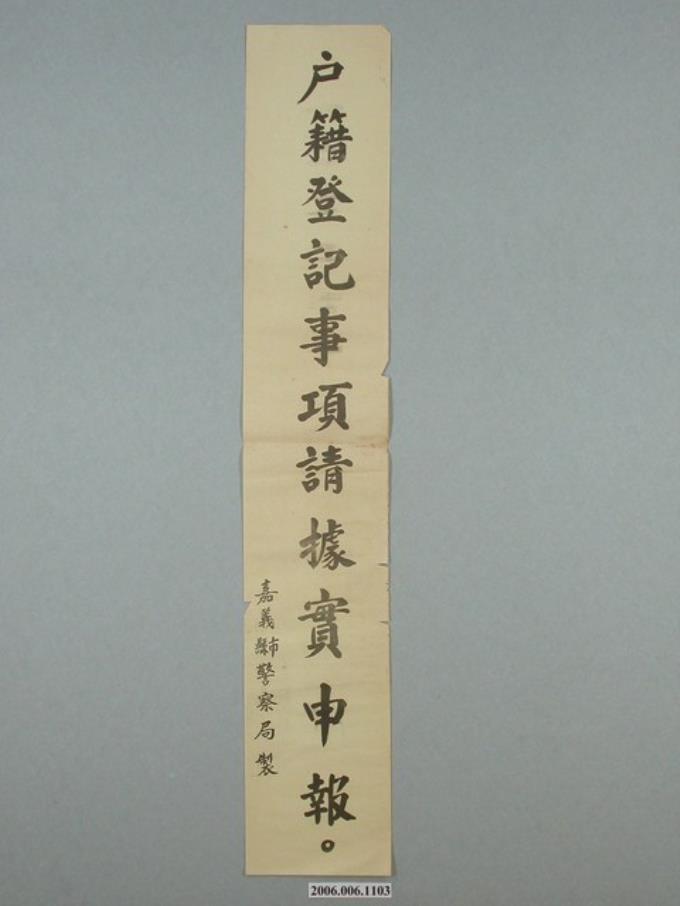 戶籍登記事項請據實申報。
嘉義縣市警察局製
2006.006.1103